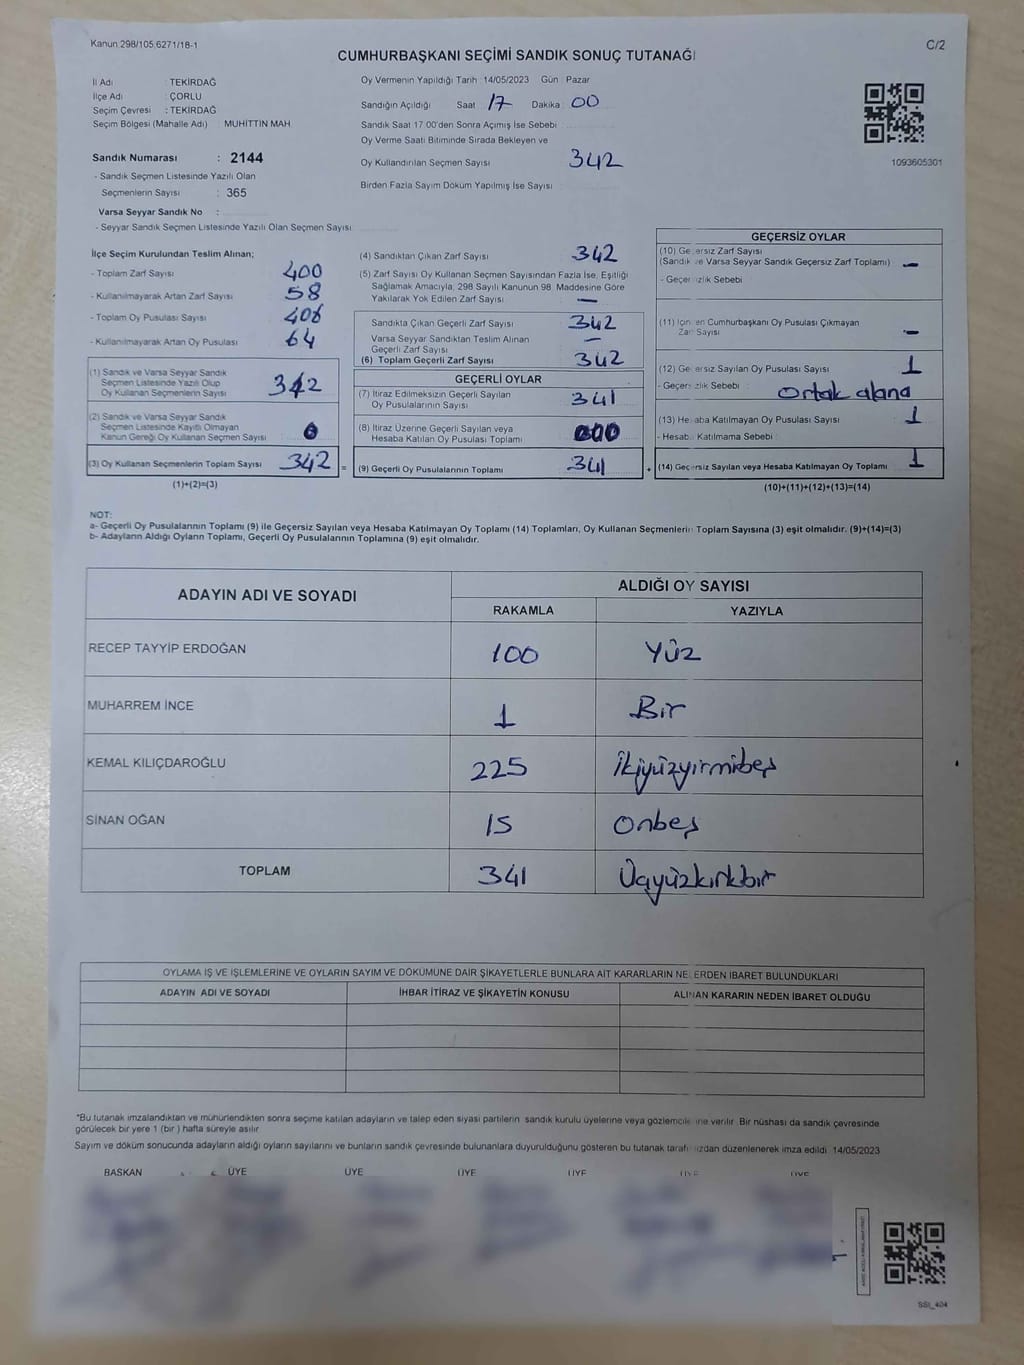 Kanun 298/105,6271/18-1
C/2
CUMHURBAŞKANI SEÇİMİ SANDIK SONUÇ TUTANAĞI
İl Adı : TEKİRDAĞ
İlçe Adı : ÇORLU
Seçim Çevresi : TEKİRDAĞ
Seçim Bölgesi (Mahalle Adı) : MUHİTTİN MAH
Sandık Numarası : 2144
- Sandık Seçmen Listesinde Yazılı Olan
Seçmenlerin Sayısı : 365
Varsa Seyyar Sandık No :
- Seyyar Sandık Seçmen Listesinde Yazılı Olan Seçmen Sayısı
Oy Vermenin Yapıldığı Tarih 14/05/2023 Gün Pazar
Sandığın Açıldığı Saat 17 Dakika 00
Sandık Saat 17:00'den Sonra Açımış İse Sebebi
Oy Verme Saati Bitiminde Sırada Bekleyen ve
Oy Kullandırılan Seçmen Sayısı 342
Birden Fazla Sayım Döküm Yapılmış İse Sayısı
1093605301
İlçe Seçim Kurulundan Teslim Alınan;
- Toplam Zarf Sayısı 400
- Kullanılmayarak Artan Zarf Sayısı 58
- Toplam Oy Pusulası Sayısı 406
- Kullanılmayarak Artan Oy Pusulası 64
(1) Sandık ve Varsa Seyyar Sandık
Seçmen Listesinde Yazılı Olup
Oy Kullanan Seçmenlerin Sayısı 342
(2) Sandık ve Varsa Seyyar Sandık
Seçmen Listesinde Kayıtlı Olmayan
Kanun Gereği Oy Kullanan Seçmen Sayısı 0
(3) Oy Kullanan Seçmenlerin Toplam Sayısı 342 =
(1)+(2)=(3)
(4) Sandıktan Çıkan Zarf Sayısı 342
(5) Zarf Sayısı Oy Kullanan Seçmen Sayısından Fazla İse, Eşitliği
Sağlamak Amacıyla, 298 Sayılı Kanunun 98. Maddesine Göre
Yakılarak Yok Edilen Zarf Sayısı —
Sandıkta Çıkan Geçerli Zarf Sayısı 342
Varsa Seyyar Sandıktan Teslim Alınan
Geçerli Zarf Sayısı —
(6) Toplam Geçerli Zarf Sayısı 342
GEÇERLİ OYLAR
(7) İtiraz Edilmeksizin Geçerli Sayılan
Oy Pusulalarının Sayısı 341
(8) İtiraz Üzerine Geçerli Sayılan veya
Hesaba Katılan Oy Pusulası Toplamı 000
(9) Geçerli Oy Pusulalarının Toplamı 341 +
GEÇERSİZ OYLAR
(10) Geçersiz Zarf Sayısı
(Sandık ve Varsa Seyyar Sandık Geçersiz Zarf Toplamı) —
- Geçersizlik Sebebi
(11) İçinden Cumhurbaşkanı Oy Pusulası Çıkmayan
Zarf Sayısı —
(12) Geçersiz Sayılan Oy Pusulası Sayısı 1
- Geçersizlik Sebebi Ortak alana
(13) Hesaba Katılmayan Oy Pusulası Sayısı 1
- Hesaba Katılmama Sebebi
(14) Geçersiz Sayılan veya Hesaba Katılmayan Oy Toplamı 1
(10)+(11)+(12)+(13)=(14)
NOT:
a- Geçerli Oy Pusulalarının Toplamı (9) ile Geçersiz Sayılan veya Hesaba Katılmayan Oy Toplamı (14) Toplamları, Oy Kullanan Seçmenlerin Toplam Sayısına (3) eşit olmalıdır. (9)+(14)=(3)
b- Adayların Aldığı Oyların Toplamı, Geçerli Oy Pusulalarının Toplamına (9) eşit olmalıdır.
ADAYIN ADI VE SOYADI
ALDIĞI OY SAYISI
RAKAMLA YAZIYLA
RECEP TAYYİP ERDOĞAN 100 Yüz
MUHARREM İNCE 1 Bir
KEMAL KILIÇDAROĞLU 225 İkiyüzyirmibeş
SİNAN OĞAN 15 Onbeş
TOPLAM 341 Üçyüzkırkbir
OYLAMA İŞ VE İŞLEMLERİNE VE OYLARIN SAYIM VE DÖKÜMÜNE DAİR ŞİKAYETLERLE BUNLARA AİT KARARLARIN NELERDEN İBARET BULUNDUKLARI
ADAYIN ADI VE SOYADI İHBAR İTİRAZ VE ŞİKAYETİN KONUSU ALINAN KARARIN NEDEN İBARET OLDUĞU
*Bu tutanak imzalandıktan ve mühürlendikten sonra seçime katılan adayların ve talep eden siyasi partilerin sandık kurulu üyelerine veya gözlemcilerine verilir. Bir nüshası da sandık çevresinde
görülecek bir yere 1 (bir) hafta süreyle asılır
Sayım ve döküm sonucunda adayların aldığı oyların sayılarını ve bunların sandık çevresinde bulunanlara duyurulduğunu gösteren bu tutanak tarafımızdan düzenlenerek imza edildi. 14/05/2023
BAŞKAN ÜYE ÜYE ÜYE ÜYE ÜYE ÜYE
SSI_404